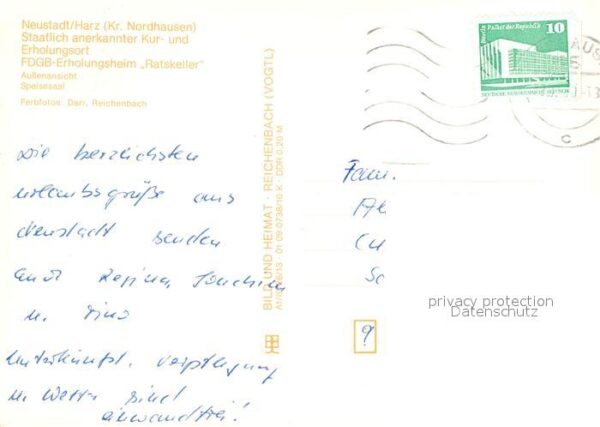 Neustadt/Harz (Kr. Nordhausen)
Staatlich anerkannter Kur- und
Erholungsort
FDGB-Erholungsheim „Ratskeller"
Außenansicht
Speisesaal
Farbfotos Darr, Reichenbach
Die herzlichsten
Urlaubsgrüße aus
Neustadt senden
Regina, Joachim
u. Tino
Unterkunft, Verpflegung
u. Wetter sind
einwandfrei!
BILD UND HEIMAT · REICHENBACH (VOGTL)
01 09 0736/10 K DDR 0,20 M
Berlin Palast der Republik
10
DEUTSCHE DEMOKRATISCHE REPUBLIK
c
Fam.
privacy protection
Datenschutz